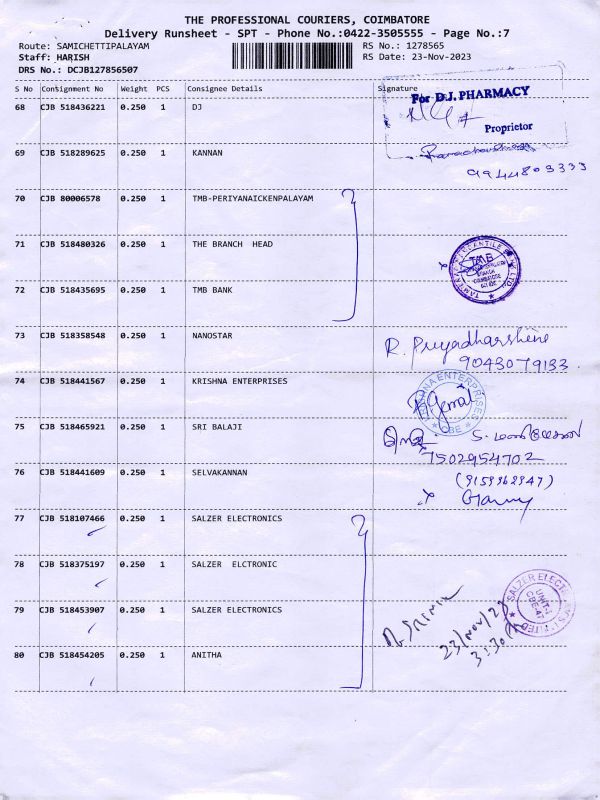 THE PROFESSIONAL COURIERS, COIMBATORE
Delivery Runsheet - SPT - Phone No.:0422-3505555 - Page No.:7
Route: SAMICHETTIPALAYAM RS No.: 1278565
Staff: HARISH RS Date: 23-Nov-2023
DRS No.: DCJB127856507
S No Consignment No Weight PCS Consignee Details Signature
68 CJB 518436221 0.250 1 DJ
For D.J. PHARMACY
Proprietor
69 CJB 518289625 0.250 1 KANNAN
9944803333
70 CJB 80006578 0.250 1 TMB-PERIYANAICKENPALAYAM
71 CJB 518480326 0.250 1 THE BRANCH HEAD
TMB
72 CJB 518435695 0.250 1 TMB BANK
73 CJB 518358548 0.250 1 NANOSTAR
R. Priyadharshini
9043079133
74 CJB 518441567 0.250 1 KRISHNA ENTERPRISES
KRISHNA ENTERPRISES
CBE
75 CJB 518465921 0.250 1 SRI BALAJI
7502954702
76 CJB 518441609 0.250 1 SELVAKANNAN
(9159962947)
77 CJB 518107466 0.250 1 SALZER ELECTRONICS
78 CJB 518375197 0.250 1 SALZER ELCTRONIC
79 CJB 518453907 0.250 1 SALZER ELECTRONICS
SALZER ELECTRONICS LIMITED
UNIT-I
CBE-47
23/Nov/23
3:30
80 CJB 518454205 0.250 1 ANITHA